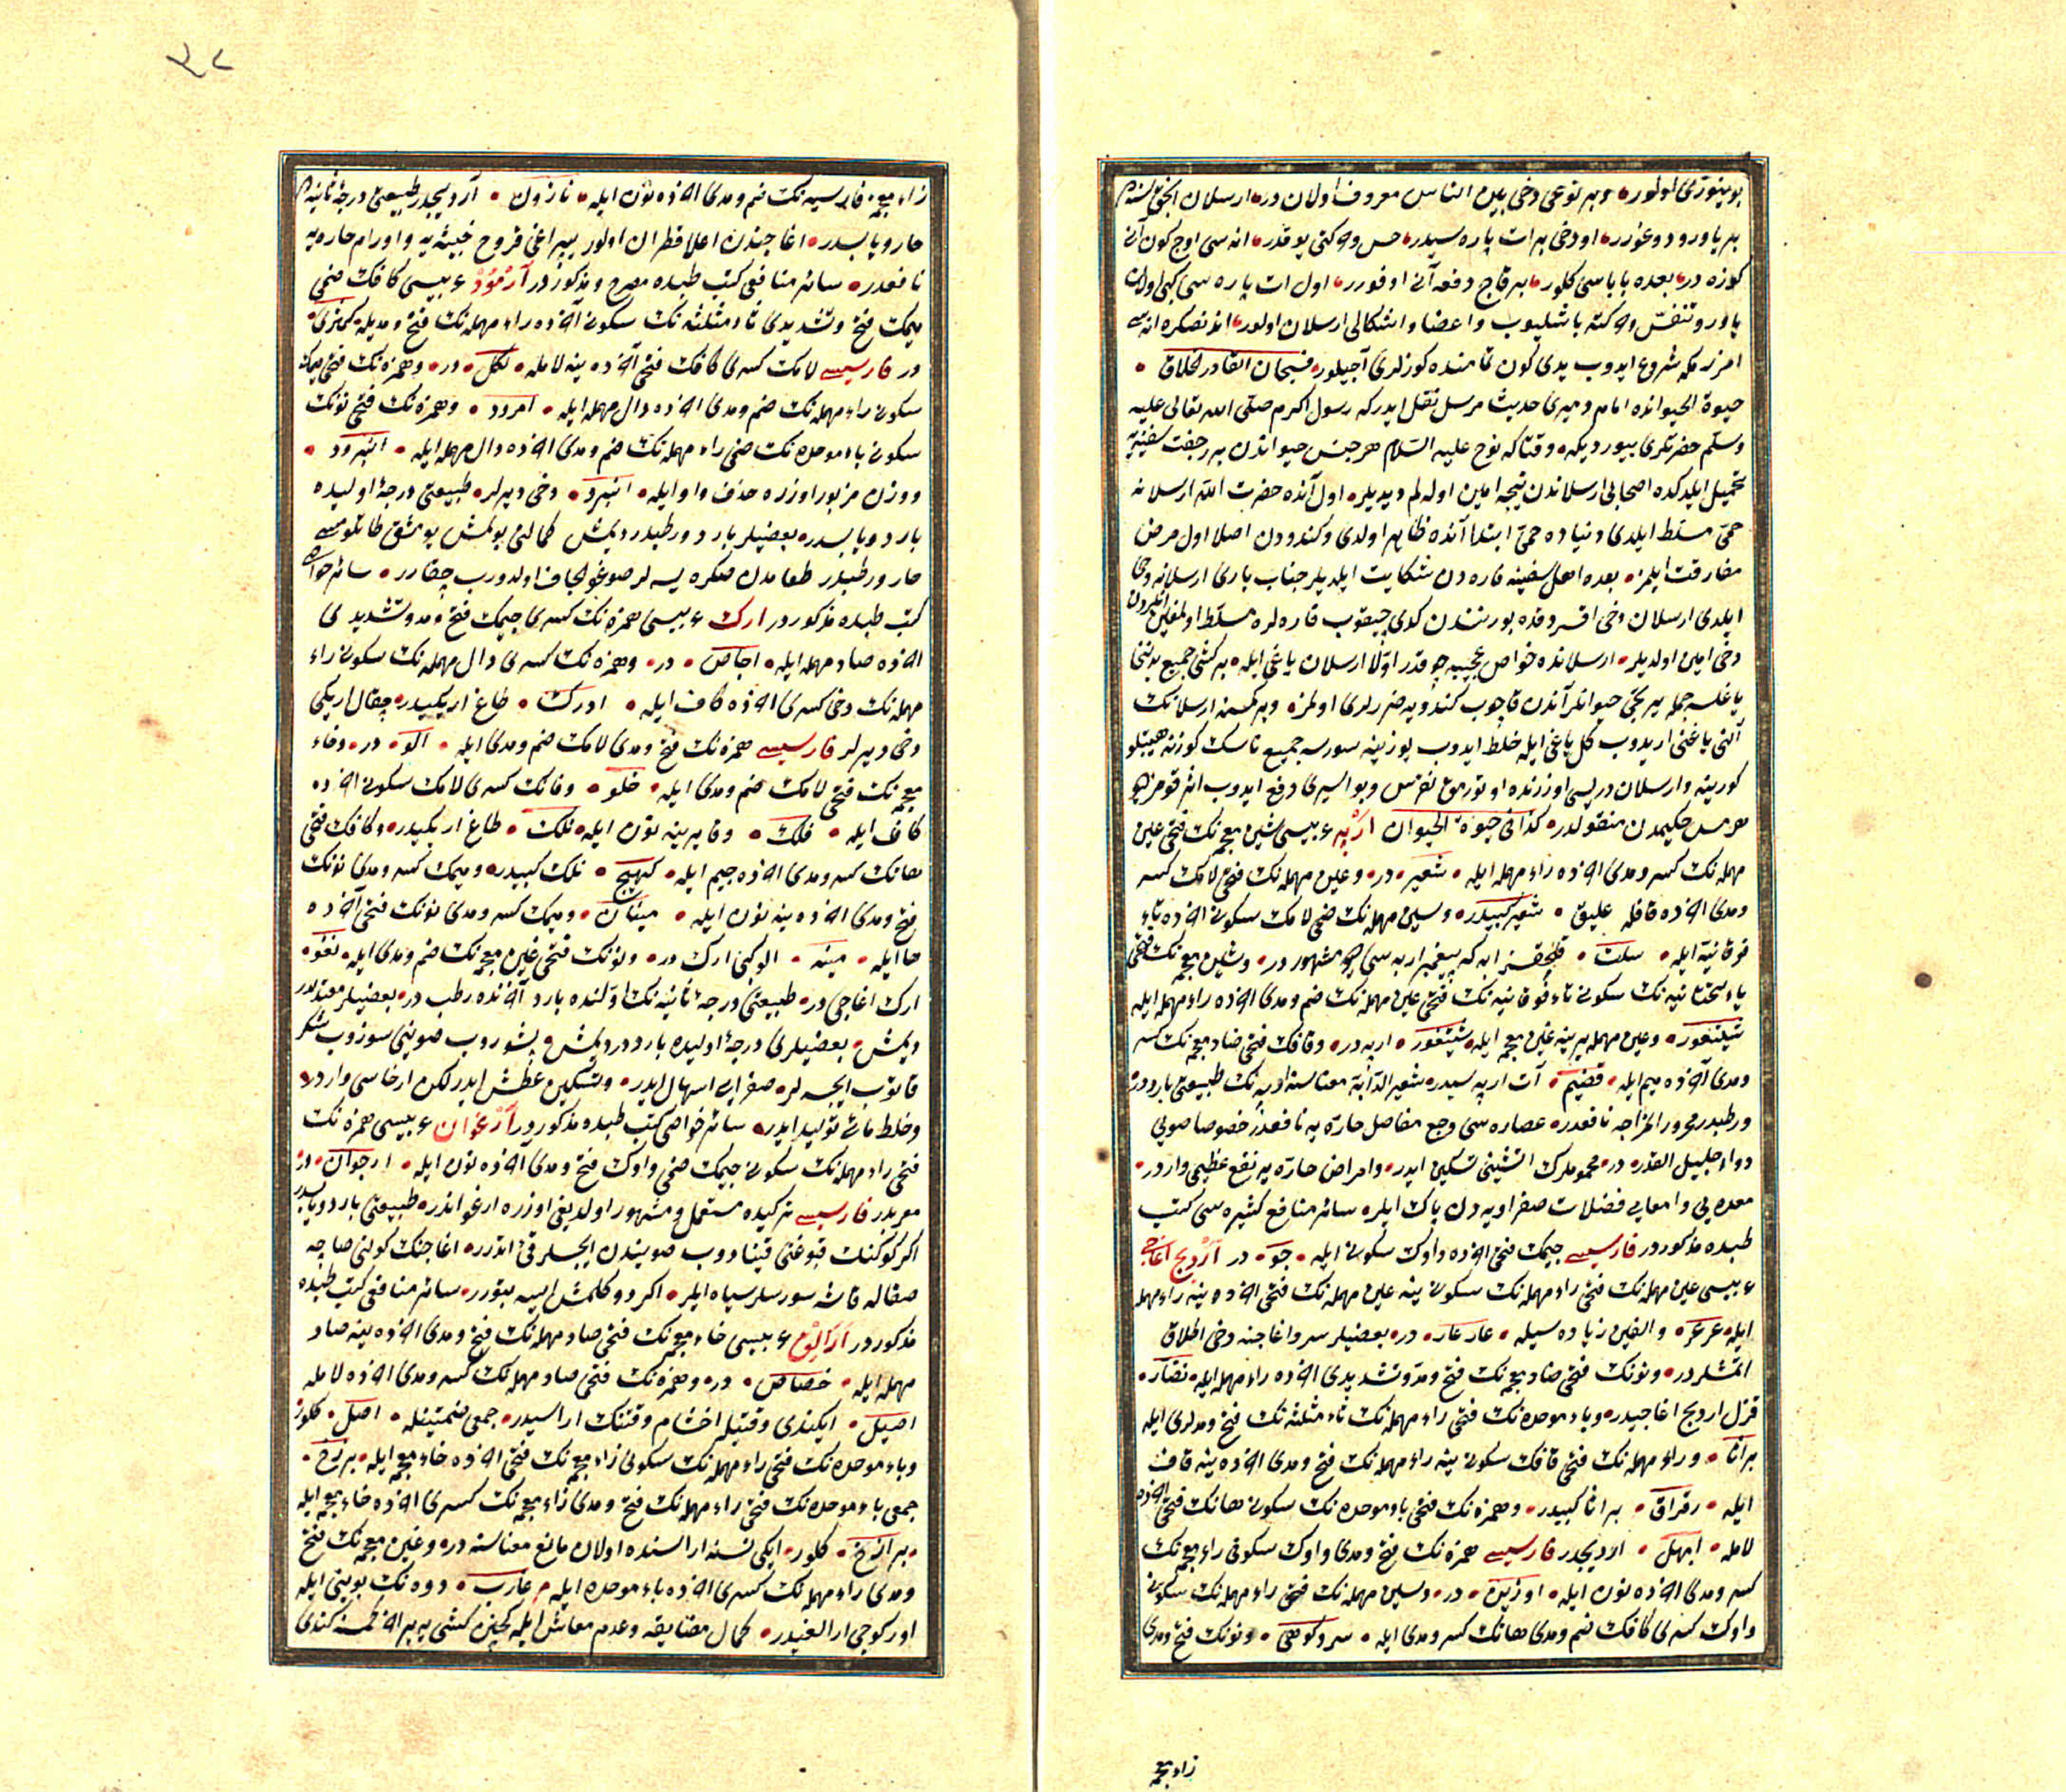 بوينوزى اولور وبر نوعى دخى بين الناس معروف اولان در ارسلان انجق بر سنه ده
بر ياورو دوغورر اودخى بر ات پاره سيدر حس وحركتى يوقدر اناسى اوچ كون آنى
كوزه در بعده باباسى كلور بر قاچ دفعه آنى اوفورر اول ات پاره سى كبى اولان
ياورو تنفس وحركته باشليوب واعضا واشكالى ارسلان اولور اندنصكره اناسى
امزرمكه شروع ايدوب يدى كون تمامنده كوزلرى آچيلور فسبحان القادر الخلاق
حيوة الحيوانده امام دميرى حديث مرسل نقل ايدركه رسول اكرم صلى الله تعالى عليه
وسلم حضرتلرى بيورديكه وقتاكه نوح عليه السلام هر جنس حيواندن بر جفت سفينه يه
تحميل ايلدكده اصحابى ارسلاندن نيجه امين اوله لم ديديلر اول آنده حضرت الله ارسلانه
حمى مسلط ايلدى دنياده حمى ابتدا آنده ظاهر اولدى وكندودن اصلا اول مرض
مفارقت ايلمز بعده اهل سفينه فاره دن شكايت ايلديلر جناب بارى ارسلانه وحى
ايلدى ارسلان دخى اقسردقده بورنندن كدى چيقوب فاره لره مسلط اولمغين انلردن
دخى امين اولديلر ارسلانده خواص عجيبه چوقدر اولا ارسلان ياغى ايله بر كشى جميع بدننى
ياغلسه جمله ييرتجى حيوانلر آندن قاچوب كندويه ضررلرى اولمز وبر كمسه ارسلانك
آلنى ياغنى اريدوب كل ياغى ايله خلط ايدوب يوزينه سورسه جميع ناسك كوزنه هيبتلو
كورينه وارسلان دريسى اوزرنده اوتورمق نقرس وبواسيرى دفع ايدوب اثر قومز ديو
هرمس حكيمدن منقولدر كذا فى حيوة الحيوان ارپه عربيسى شين معجمه نك فتحى عين
مهمله نك كسر ومدى آخرده راء مهمله ايله شعير در وعين مهمله نك فتحى لامك كسر
ومدى آخرده قافله عليق شعير كبيدر وسين مهمله نك ضمى لامك سكونى آخرده تاء
فوقانيه ايله سلت قلجقسز ارپه كه پيغمبر ارپه سى ديو مشهور در وشين معجمه نك فتحى
ياء تحتانيه نك سكونى تاء فوقانيه نك فتحى عين مهمله نك ضم ومدى آخرده راء مهمله ايله
شيتعور وعين مهمله يرينه غين معجمه ايله شيتغور ارپه در وقافك فتحى ضاد معجمه نك كسر
ومدى آخرده ميم ايله قضيم آت ارپه سيدر شعير الدابة معناسنه ارپه نك طبيعتى بارددر
ورطبدر محرور المزاجه نافعدر عصاره سى وجع مفاصل حاره يه نافعدر خصوصا صويى
دواء جليل القدر در محمومرك آتشنى تسكين ايدر وامراض حاره يه نفع عظيمى واردر
معده يى وامعايى فضلات صفراويه دن پاك ايلر سائر منافع كثيره سى كتب
طبده مذكوردر فارسيسى جيمك فتحى آخرده واوك سكونى ايله جو در آرديج اغاجى
عربيسى عين مهمله نك فتحى راء مهمله نك سكونى ينه عين مهمله نك فتحى آخرده ينه راء مهمله
ايله عرعر والفين زياده سيله عارعار در بعضيلر سرو اغاجنه دخى اطلاق
اتمشلردر ونونك فتحى ضاد معجمه نك فتح ومد وتشديدى آخرده راء مهمله ايله نضار
قزل ارديج اغاجيدر وباء موحده نك فتحى راء مهمله نك ثاء مثلثه نك فتح ومدلرى ايله
براثا وراء مهمله نك فتحى قافك سكونى ينه راء مهمله نك فتح ومدى آخرده ينه قاف
ايله رقراق براثا كبيدر وهمزه نك فتحى باء موحده نك سكونى هانك فتحى آخرده
لامله ابهل ارديجدر فارسيسى همزه نك فتح ومدى واوك سكونى راء معجمه نك
كسر ومدى آخرده نون ايله اوژين در وسين مهمله نك فتحى راء مهمله نك سكونى
واوك كسرى كافك ضم ومدى هانك كسر ومدى ايله سروكوهى ونونك فتح ومدى
زاء معجمه
٣٨
زاء معجمه فارسيه نك ضم ومدى آخرده نون ايله ناژون آرديجدر طبيعتى درجه ثانيه ده
حار ويابسدر اغاجندن اعلا قطران اولور يپراغى قروح خبيثه يه واورام حاره يه
نافعدر سائر منافعى كتب طبده مصرح ومذكوردر آرمود عربيسى كافك ضمى
ميمك فتح وتشديدى ثاء مثلثه نك سكونى آخرده راء مهمله نك فتح ومديله كمثرى
در فارسيسى لامك كسرى كافك فتحى آخرده ينه لامله لكل در وهمزه نك فتحى ميمك
سكونى راء مهمله نك ضم ومدى آخرده دال مهمله ايله امرود وهمزه نك فتحى نونك
سكونى باء موحده نك ضمى راء مهمله نك ضم ومدى آخرده دال مهمله ايله انبرود
ووزن مزبور اوزره حذف واو ايله انبرد دخى ديرلر طبيعتى درجه اوليده
بارد ويابسدر بعضيلر بارد ورطبدر ديمش كمالنى بولمش يومشق طاتلوسى
حار ورطبدر طعامدن صكره يسه لر صوغولجان اولدورب چقارر سائر خواصى
كتب طبده مذكوردر ارك عربيسى همزه نك كسرى جيمك فتح ومد وتشديدى
آخرده صاد مهمله ايله اجاص در وهمزه نك كسرى دال مهمله نك سكونى راء
مهمله نك دخى كسرى آخرده كاف ايله ادرك طاغ اريكيدر چقال اريكى
دخى ديرلر فارسيسى همزه نك فتح ومدى لامك ضم ومدى ايله آلو در وخاء
معجمه نك فتحى لامك ضم ومدى ايله خلو وفانك كسرى لامك سكونى آخرده
كاف ايله فلك وفا يرينه نون ايله نلك طاغ اريكيدر وكافك فتحى
هانك كسر ومدى آخرده جيم ايله كهيج نلك كبيدر وميمك كسر ومدى نونك
فتح ومدى آخرده ينه نون ايله مينان وميمك كسر ومدى نونك فتحى آخرده
ها ايله مينه الوكبى ارك در ونونك فتحى غين معجمه نك ضم ومدى ايله نغو
ارك اغاجى در طبيعتى درجه ثانيه نك اولنده بارد آخرنده رطب در بعضيلر معتدلدر
ديمش بعضيلرى درجه اوليده بارددر ديمش پشوروب صوينى سوزوب شكر
قاتوب ايچسه لر صفرايى اسهال ايدر وتسكين عطش ايدر لكن ارخاسى واردر
وخلط مائى توليد ايدر سائر خواصى كتب طبده مذكوردر آرغوان عربيسى همزه نك
فتحى راء مهمله نك سكونى جيمك ضمى واوك فتح ومدى آخرده نون ايله ارجوان در
معربدر فارسيسى تركيده مستعمل ومشهور اولديغى اوزره ارغواندر طبيعتى بارد ويابسدر
اكر كوكنك قبوغنى قيناادوب صويندن ايچسلر قئ ايتدرر اغاجنك كولنى صاچه
صقاله قاشه سورسلر سياه ايلر اكر دوكلمش ايسه بتورر سائر منافعى كتب طبده
مذكوردر ارالق عربيسى خاء معجمه نك فتحى صاد مهمله نك فتح ومدى آخرده ينه صاد
مهمله ايله خصاص در وهمزه نك فتحى صاد مهمله نك كسر ومدى آخرده لامله
اصيل ايكندى وقتيله اخشام وقتنك اراسيدر جمعى ضمتينله اصل كلور
وباء موحده نك فتحى راء مهمله نك سكونى زاء معجمه نك فتحى آخرده خاء معجمه ايله برزخ
جمعى باء موحده نك فتحى راء مهمله نك فتح ومدى زاء معجمه نك كسرى آخرده خاء معجمه ايله
برازخ كلور ايكى نسنه اراسنده اولان مانع معناسنه در وغين معجمه نك فتح
ومدى راء مهمله نك كسرى آخرده باء موحده ايله غارب دوه نك بوينى ايله
اوركوجى ارالغيدر كمال مضايقه وعدم معاش ايله كچين كشى يه